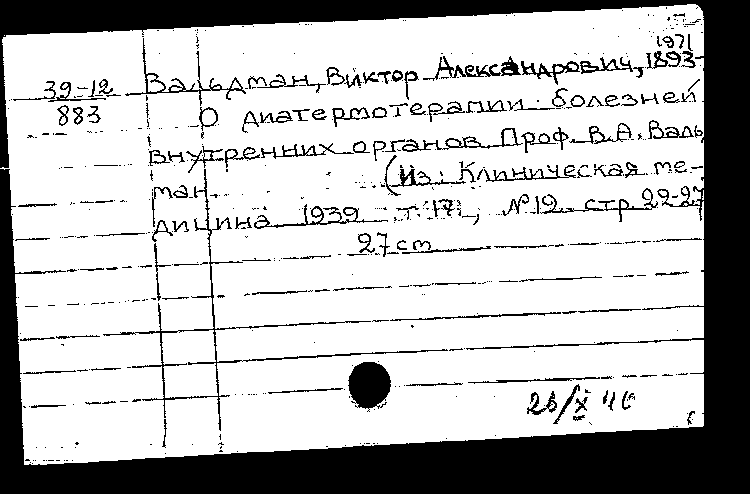 1971
39-12 Вальдман, Виктор Александрович, 1893-
883 О диатермотерапии болезней
внутренних органов. Проф. В.А. Вальд
ман. (Из: Клиническая ме-
дицина 1939 т. 17, №12. стр. 22-27
27 cm
/X 46